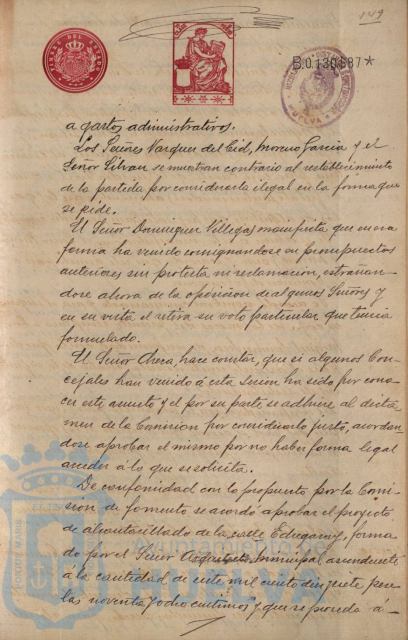 149
B.0.130.687*
a gastos administrativos.
Los Señores Vazquez del Cid, Moreno García y el
Señor Silvan se muestran contrario al restablecimiento
de la partida por considerarla ilegal en la forma que
se pide.
El Señor Dominguez Villegas manifiesta que en esa
forma ha venido consignandose en presupuestos
anteriores sin protesta ni reclamación, estrañan-
dose ahora de la oposición de algunos Señores y
en su vista el retira su voto particular que tenia
formulado.
El Señor Checa, hace constar, que si algunos Con-
cejales han venido á esta Sesion ha sido por cono-
cer este asunto y el por su parte se adhiere al dictá-
men de la Comision por considerarlo justo, acordan-
dose aprobar el mismo por no haber forma legal
acceder á lo que se solicita.
De conformidad con lo propuesto por la Comi-
sion de fomento se acordó aprobar el proyecto
de alcantarillado de la calle forma-
do por el Señor Arquitecto Municipal ascendente
á la cantidad de siete mil ciento diez y siete pese-
tas noventa y ocho centimos y que se proceda á-
HUELVA